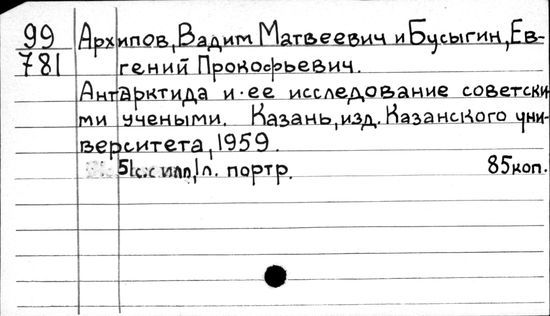 99 Архипов, Вадим Матвеевич и Бусыгин, Ев-
781 гений Прокофьевич.
Антарктида и ее исследование советски-
ми учеными. Казань, изд. Казанского уни-
верситета, 1959.
с илл, 1 л. портр. 85 коп.